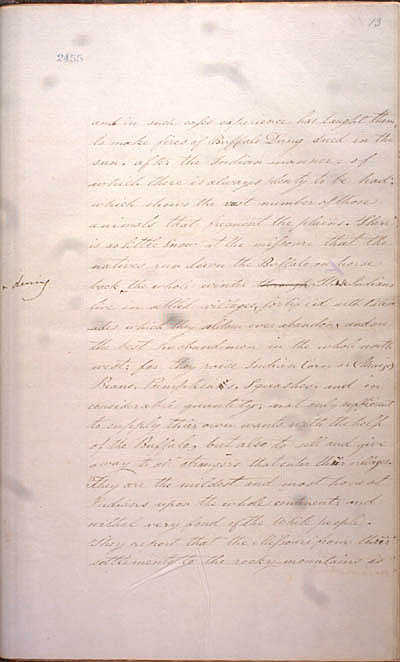 13
2455
and in such case experience has taught them,
to make fires of Buffalo Dung dried in the
sun, after the Indian manner, of
which there is always plenty to be had;
which shows the vast number of those
animals that frequent the plains. There
is so little snow at the missouri that the
natives run down the Buffalo on horse
+ during
back + the whole winter through. These Indians
live in settled villages, fortified with
which they seldom ever abandon, and are
the best husbandmen in the whole north
west; for they raise Indian Corn or (Mays)
Beans, Pumpkins, Squashes, and in
considerable quantity, not only sufficient
to supply their own wants with the help
of the Buffalo, but also to sell and give
away to all strangers that enter their villages.
They are the mildest and most honest
Indians upon the whole continent and
withal very fond of the white people.
They report that the Missouri from their
settlements to the rocky mountains is